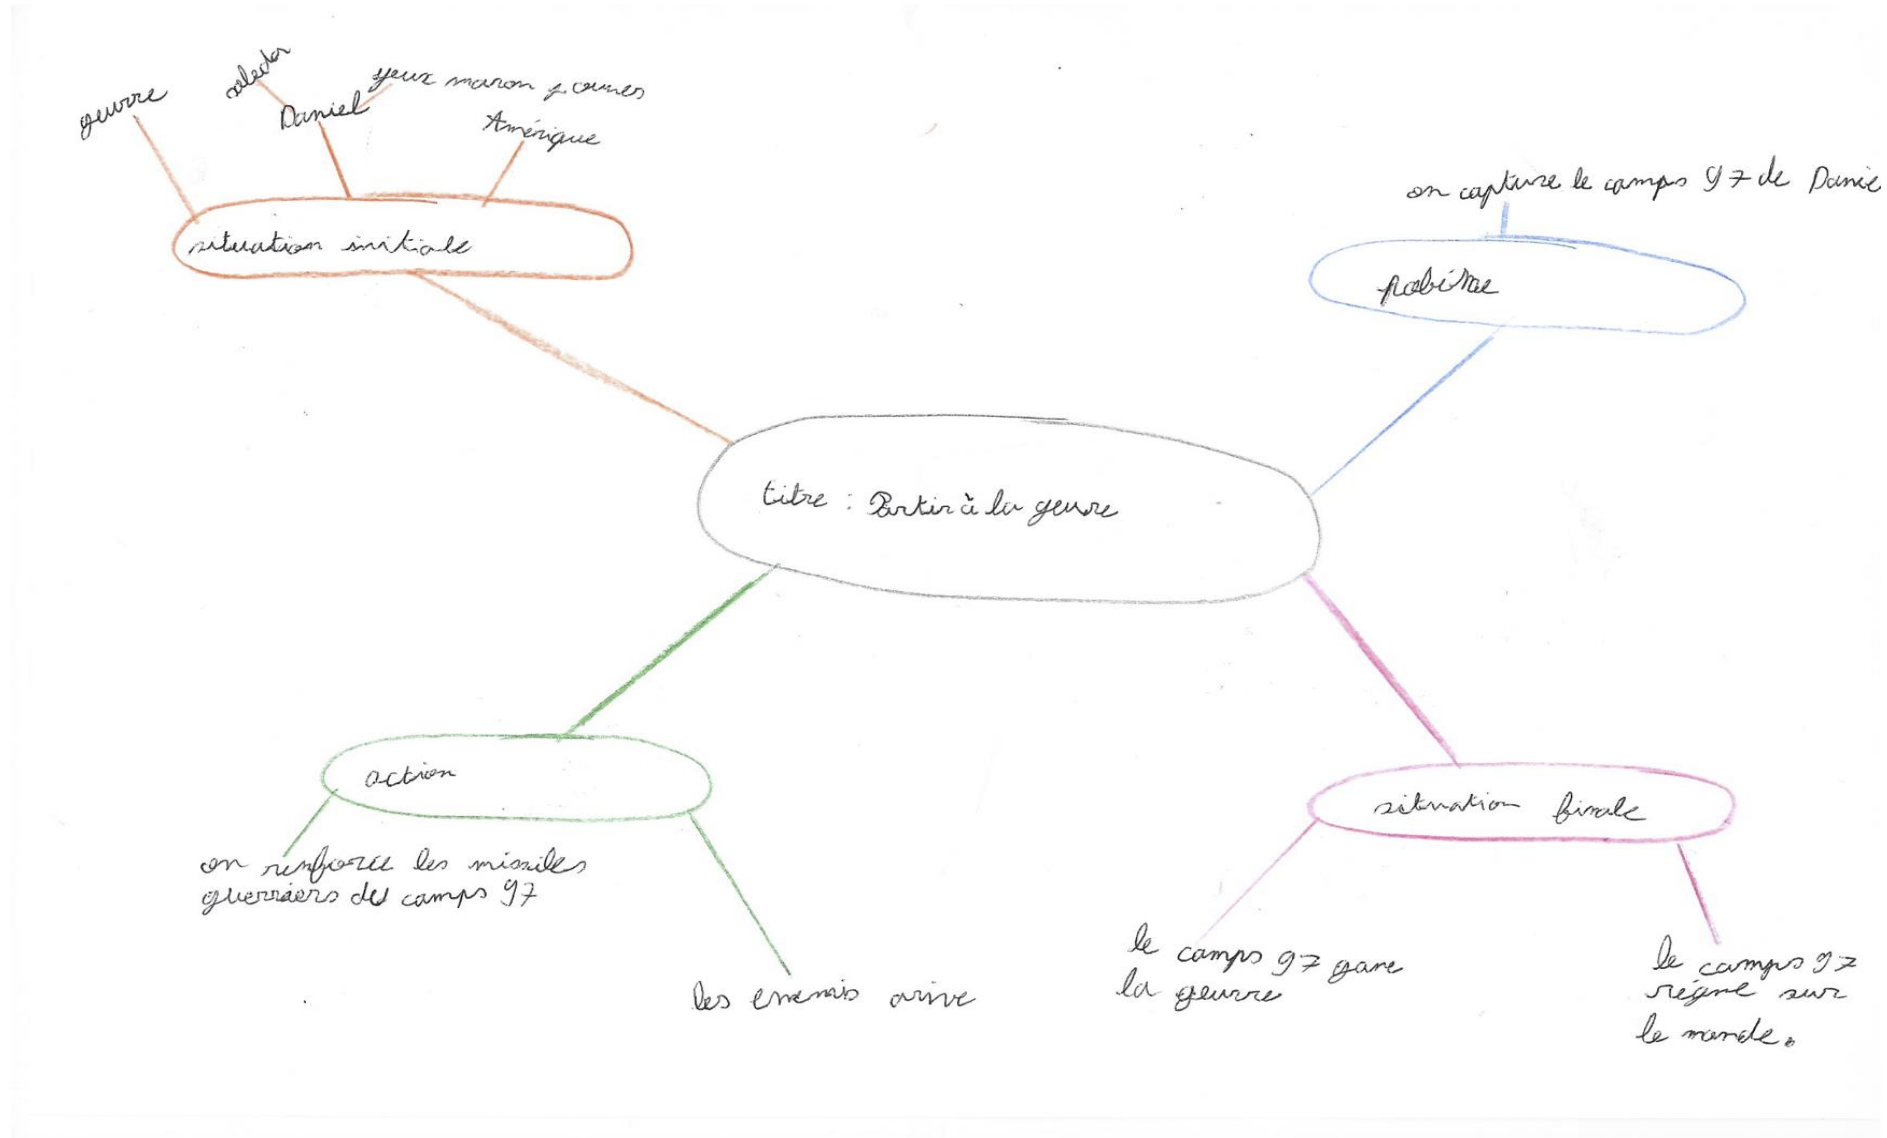 geurre
Daniel
yeux maron
Amérique
situation initiale
on capture le camps 97 de Danie
titre : Partir à la geurre
action
on renforce les missiles
guerriers du camps 97
les ennemis arive
situation finale
le camps 97 gane
la geurre
le camps 97
régne sur
le monde.